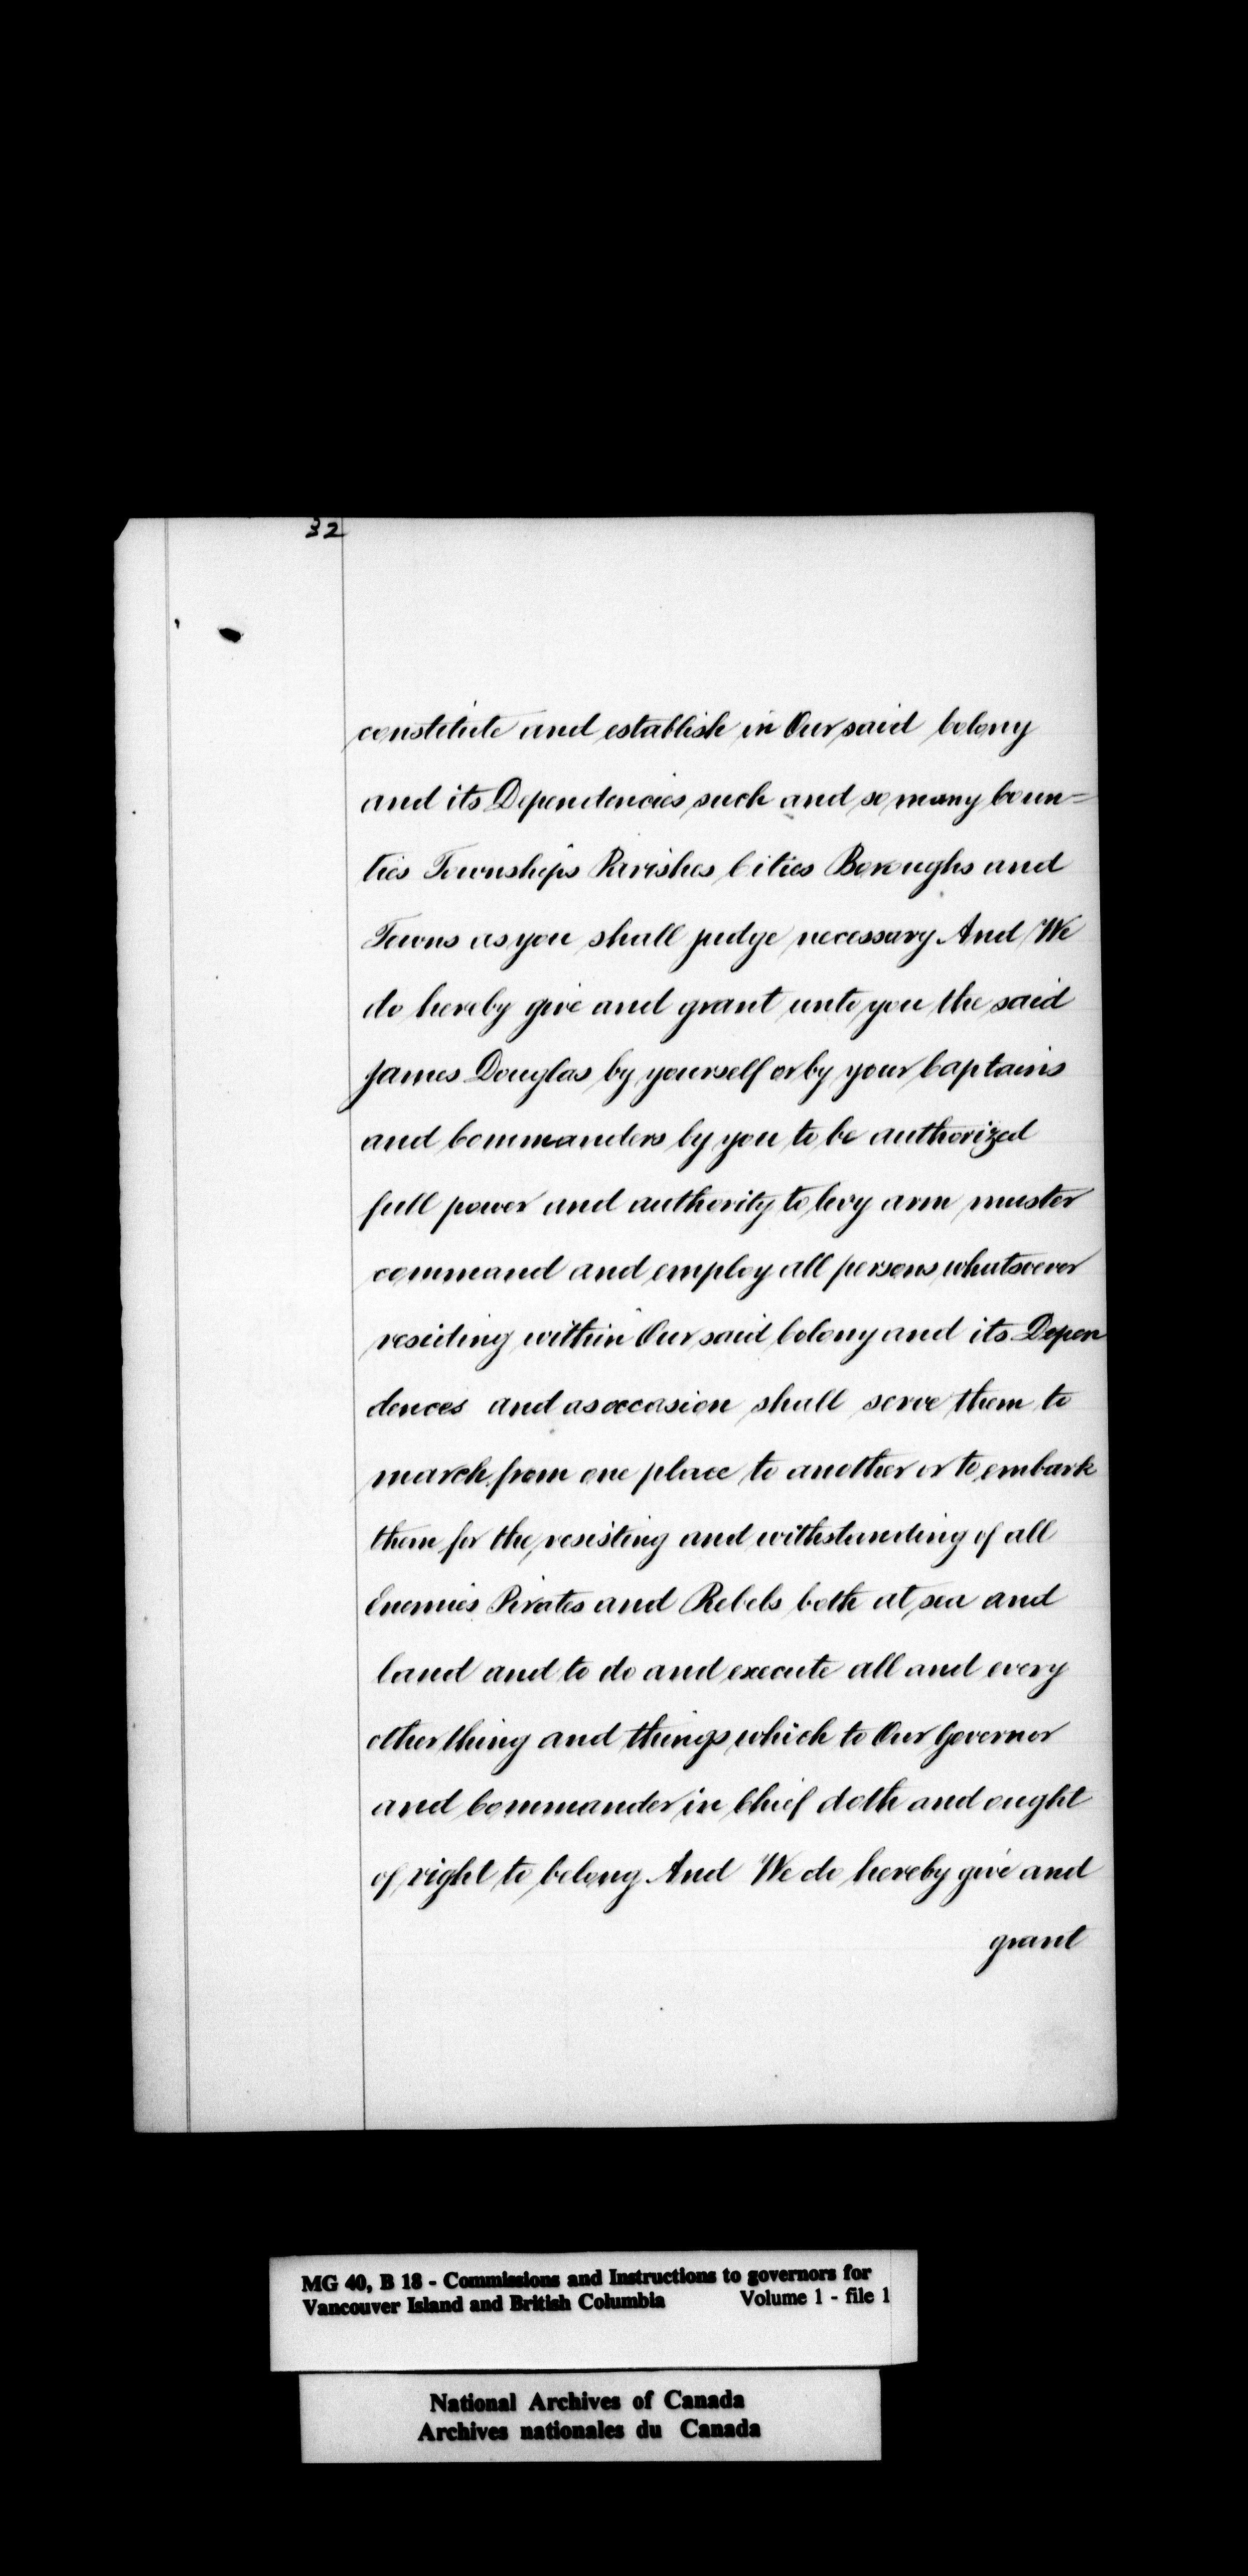 32
constitute and establish in Our said Colony
and its Dependencies such and so many Coun=
ties Townships Parishes Cities Boroughs and
Towns as you shall judge necessary And We
do hereby give and grant unto you the said
James Douglas by yourself or by your Captains
and Commanders by you to be authorized
full power and authority to levy arm muster
command and employ all persons whatsoever
residing within Our said Colony and its Depen
dences and as occasion shall serve them to
march from one place to another or to embark
them for the resisting and withstanding of all
Enemies Pirates and Rebels both at sea and
land and to do and execute all and every
other thing and things which to Our Governor
and Commander in Chief doth and ought
of right to belong And We do hereby give and
grant
MG 40, B 18 - Commissions and Instructions to governors for
Vancouver Island and British Columbia Volume 1 - file 1
National Archives of Canada
Archives nationales du Canada